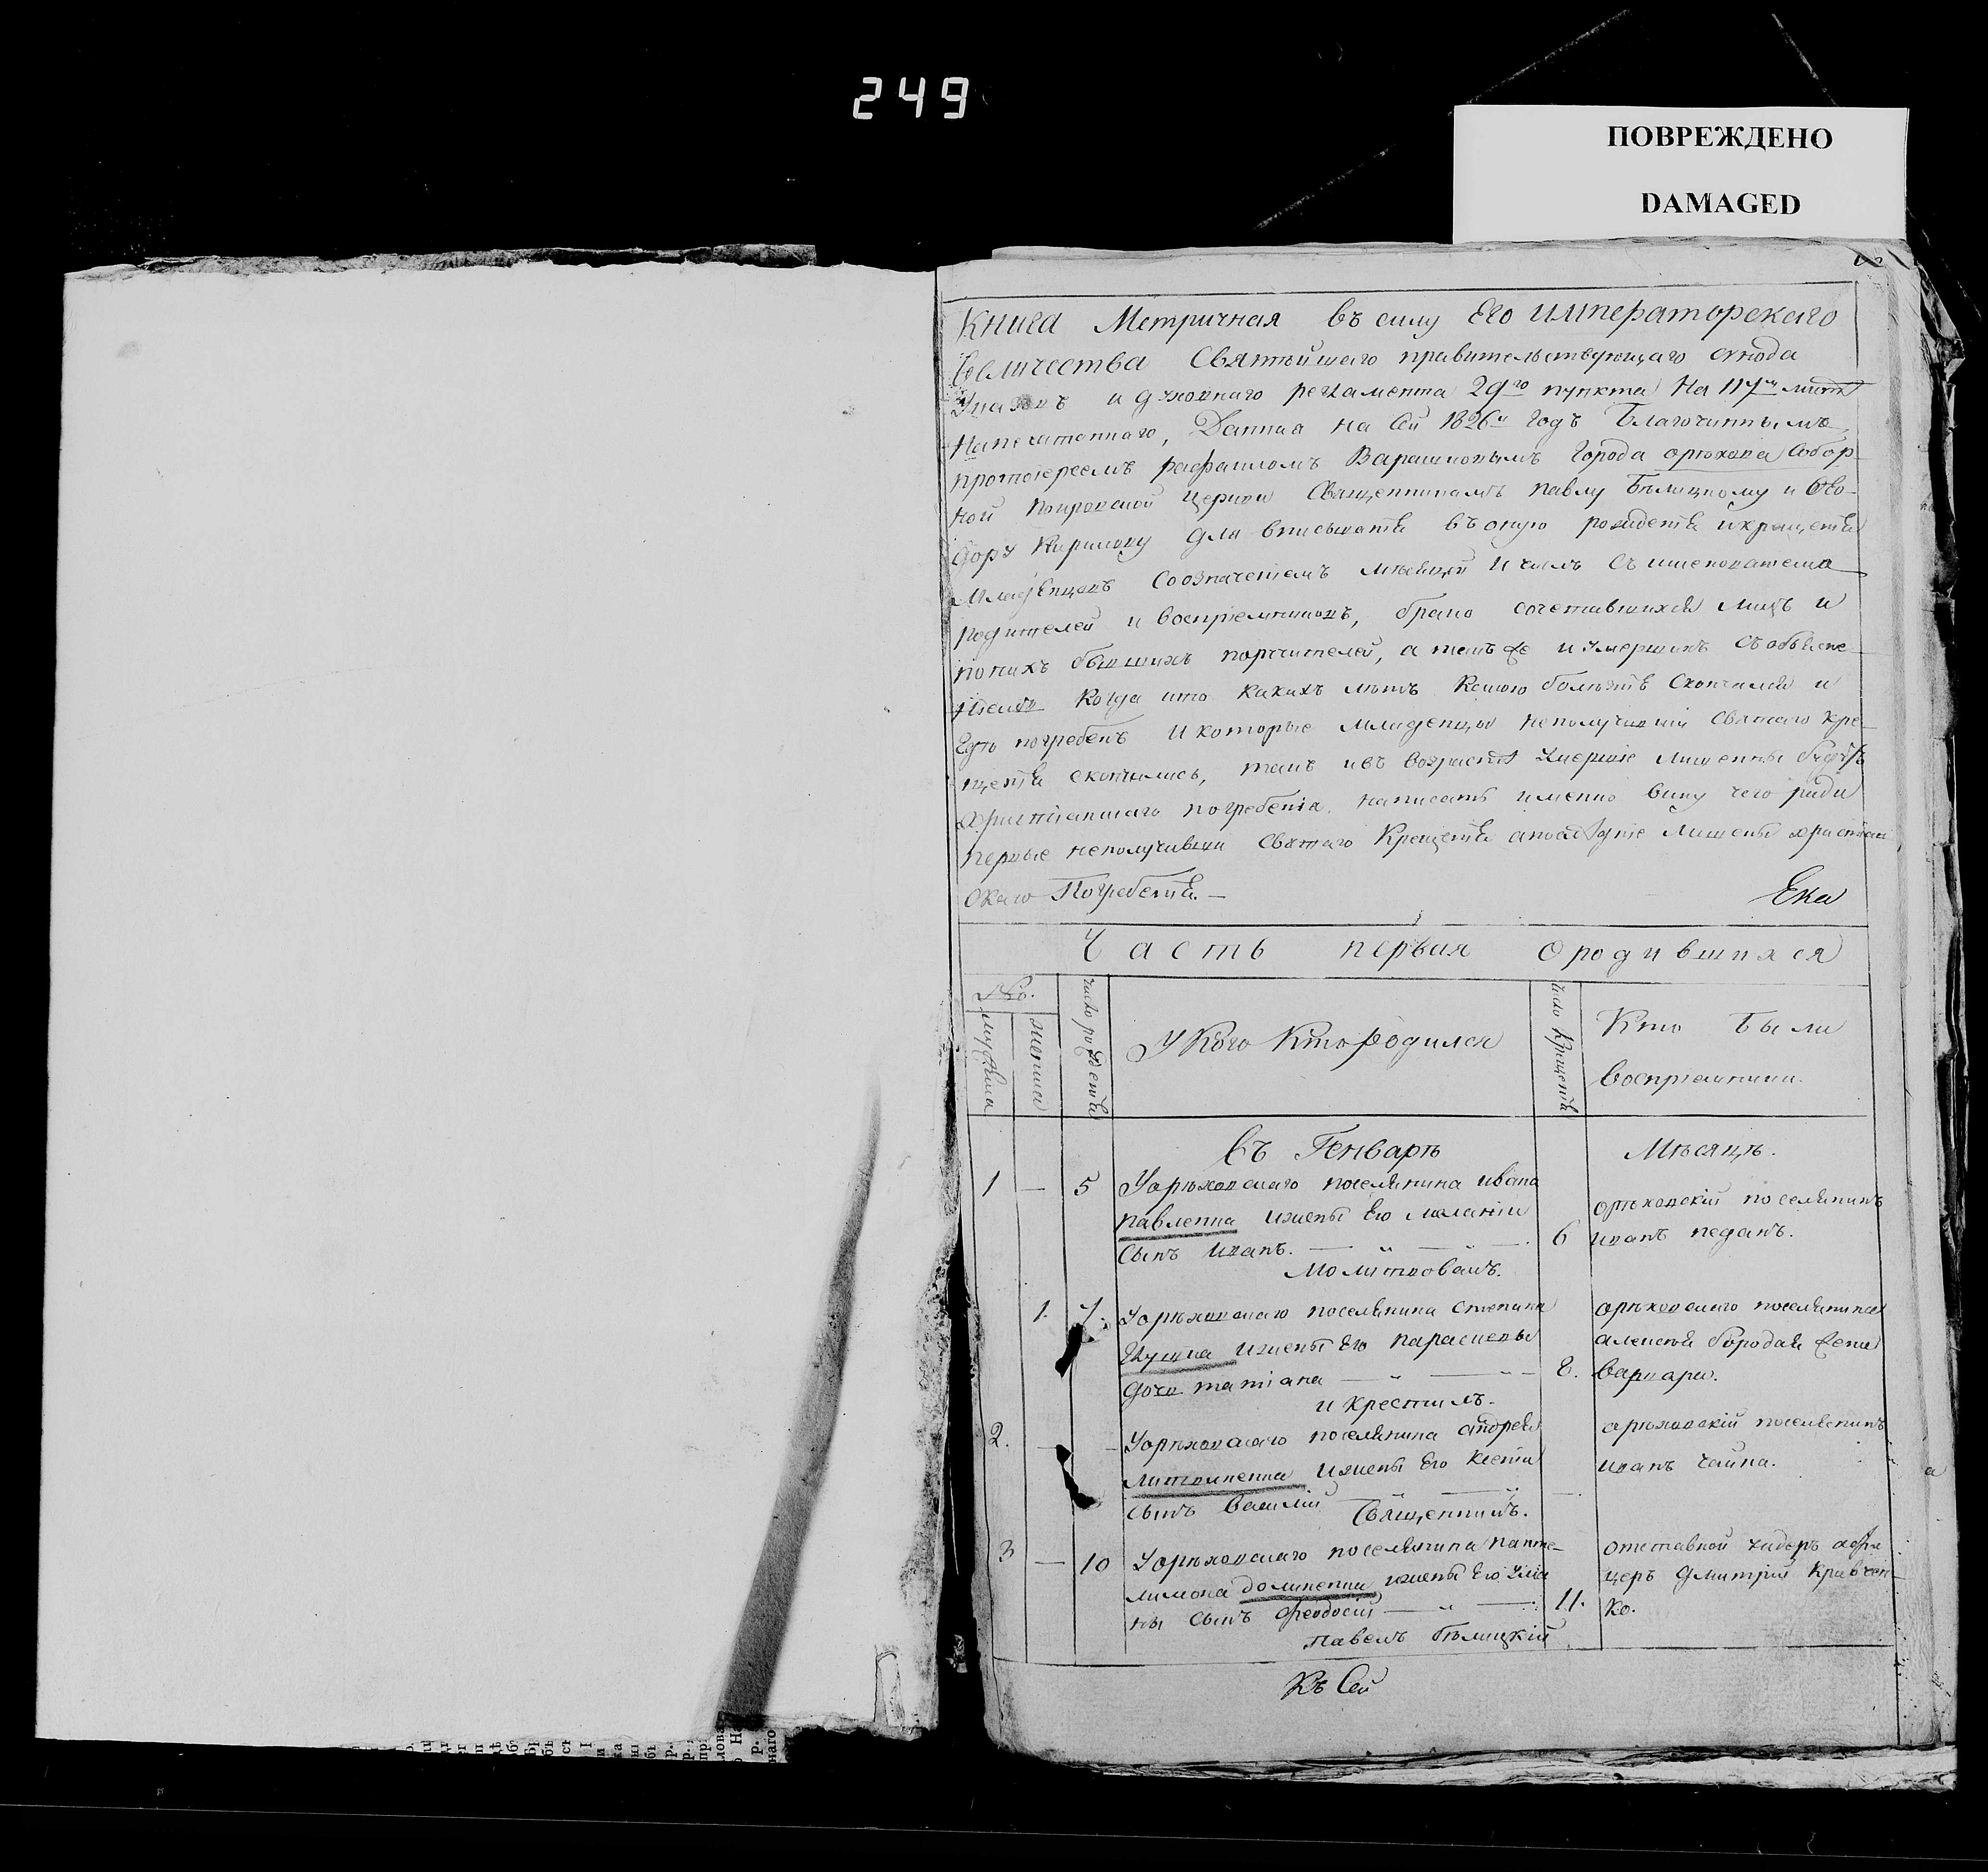 249
ПОВРЕЖДЕНО
DAMAGED
Книга Метричная въ силу Его императорскаго
Величества Святѣйшаго правительствующаго сѵнода
Указовъ и духовнаго регламента 29го пункта На 117м листѣ
Напечатаннаго, Данная на Сей 1826й Годъ Благочиннымъ
протоіереемъ рафаиломъ Города орѣхова Собор-
ной покровской Церкви Священникамъ павлу Бѣлицкому и Ѳео-
дору Кирилову для вписыванія въ оную рожденія и крещенія
Младенцовъ Созначеніемъ мѣсяцей и числъ Съ именованіемъ
Родителей и воспріемниковъ, брано сочетавшихся лицъ и
по нихъ бывшихъ поручителей, а такъ же и умершихъ Съ объясне-
ніемъ Когда кто какихъ лѣтъ Какою болѣзнѣ Скончался и
Гдѣ погребенъ И которые младенцы неполучивши Святаго Кре-
щенія скончались, такъ и въ возрастѣ Умершіе лишенны будутъ
христіанскаго погребенія. написать именно вину чего ради
первые неполучивши Святаго Крещенія а послѣдніе Лишены христіан
скаго Погребенія. —
Ека
Часть первая о родившихся
№.
мужеска
женска
число рожденія
У Кого Кто родился
число Крещенія
Кто Были
воспріемники.
Въ Генварѣ Мѣсяцѣ.
1 — 5 У орѣховскаго поселянина ивана
павленка и жены Его маланіи
Сынъ Иванъ. — 6
орѣховскій поселянинъ
иванъ педанъ.
Молитвовалъ.
1. 7. У орѣховскаго поселянина Степана
Гкушка и жены Его параскевы
дочь татіана — 8.
орѣховскаго поселянина
алексѣя бородая жена
варвара.
и крестилъ.
2. — У орѣховскаго поселянина андрея
Литвиненка и жены Его Ксеніи
Сынъ василій —
орѣховскій поселянинъ
иванъ чайка.
Священникъ.
3 — 10 У орѣховскаго поселянина панте-
лимона доминенка и жены Его Улія
ны Сынъ Ѳеодосій — 11.
отставной ундеръ офи
церъ дмитрій Кравчен-
ко.
Павелъ Бѣлицкій
Къ Сей